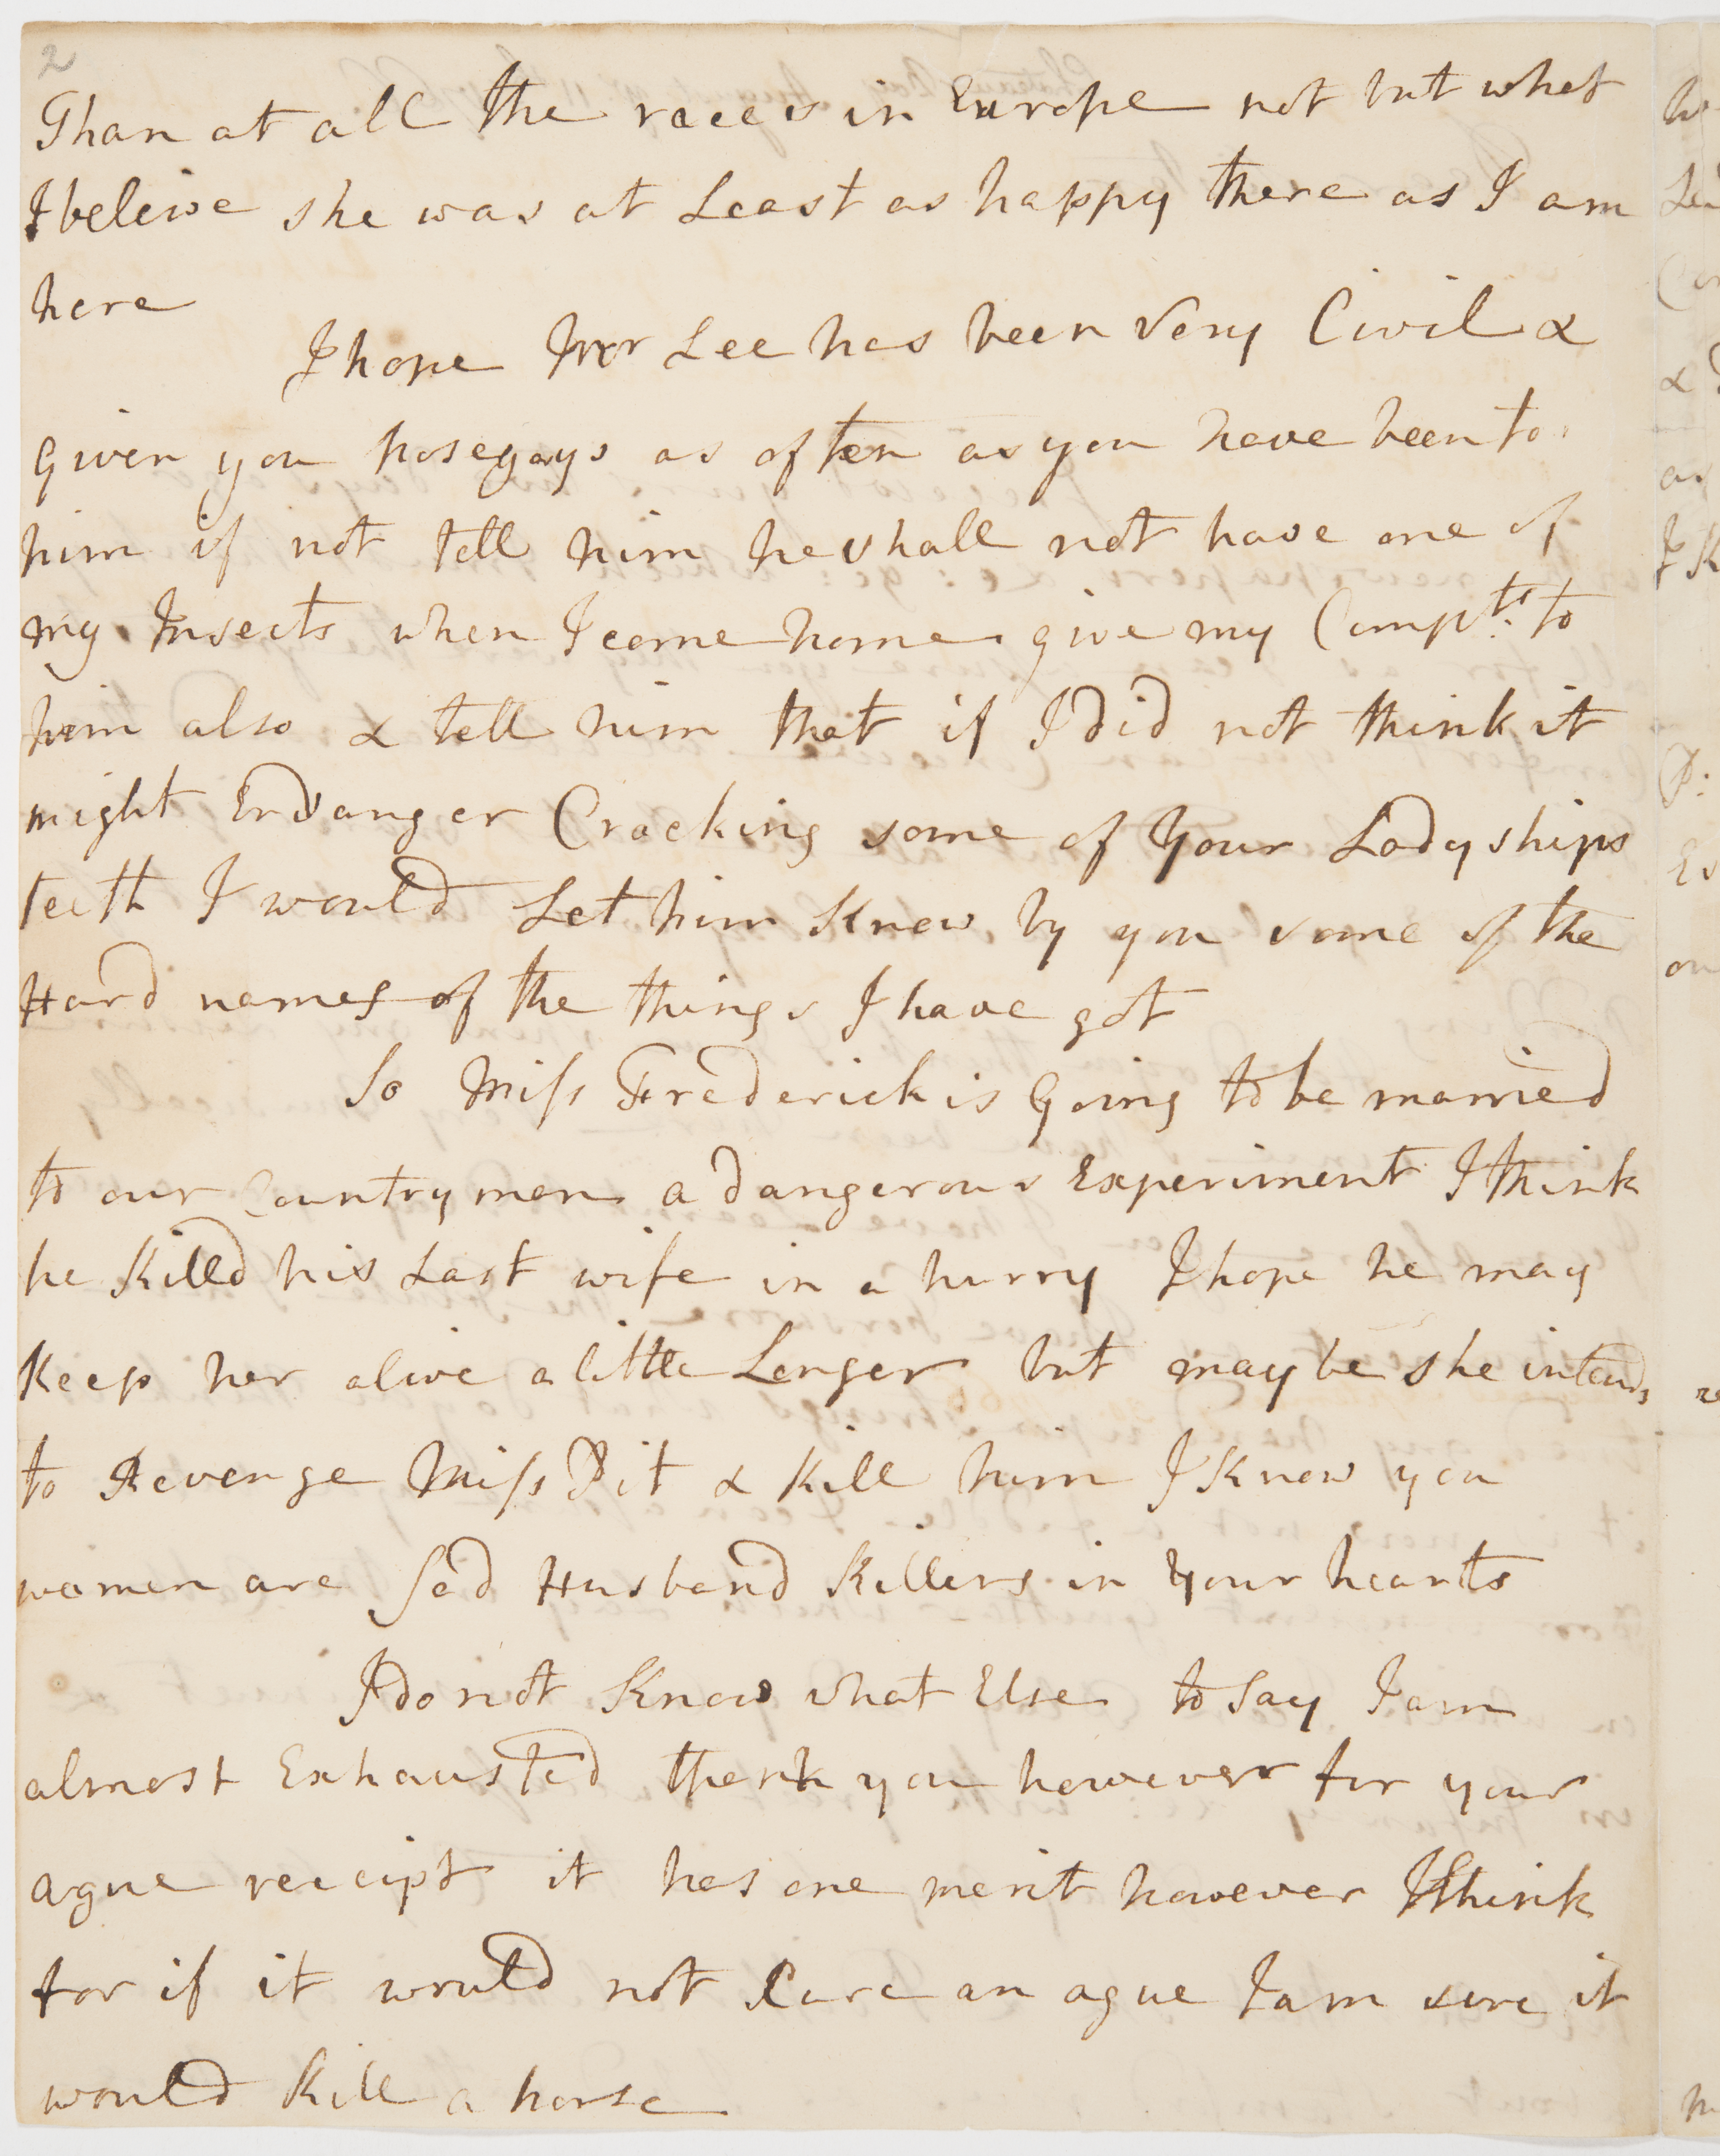 2
Than at all the races in Europe not but what
I beleive she was at Least as happy there as I am
here
I hope Mr Lee has been Very Civil &
Given you nosegays as often as you have been to
him if not tell him he shall not have one of
my Insects when I come home give my Compts. to
him also & tell him that if I did not think it
might Endanger Cracking some of your Ladyships
teeth I would Let him Know by you some of the
Hard names of the things I have got
So Miss Frederick is Going to be married
to our Countryman a dangerous Experiment I think
he Killd his Last wife in a hurry I hope he may
Keep her alive a little Longer but maybe she intends
to Revenge Miss Pit & Kill him I Know you
women are Sad Husband Killers in your hearts
I do not Know what Else to Say I am
almost Exhausted thank you however for your
ague receipt it has one merit however I think
for if it would not Cure an ague I am sure it
would Kill a horse